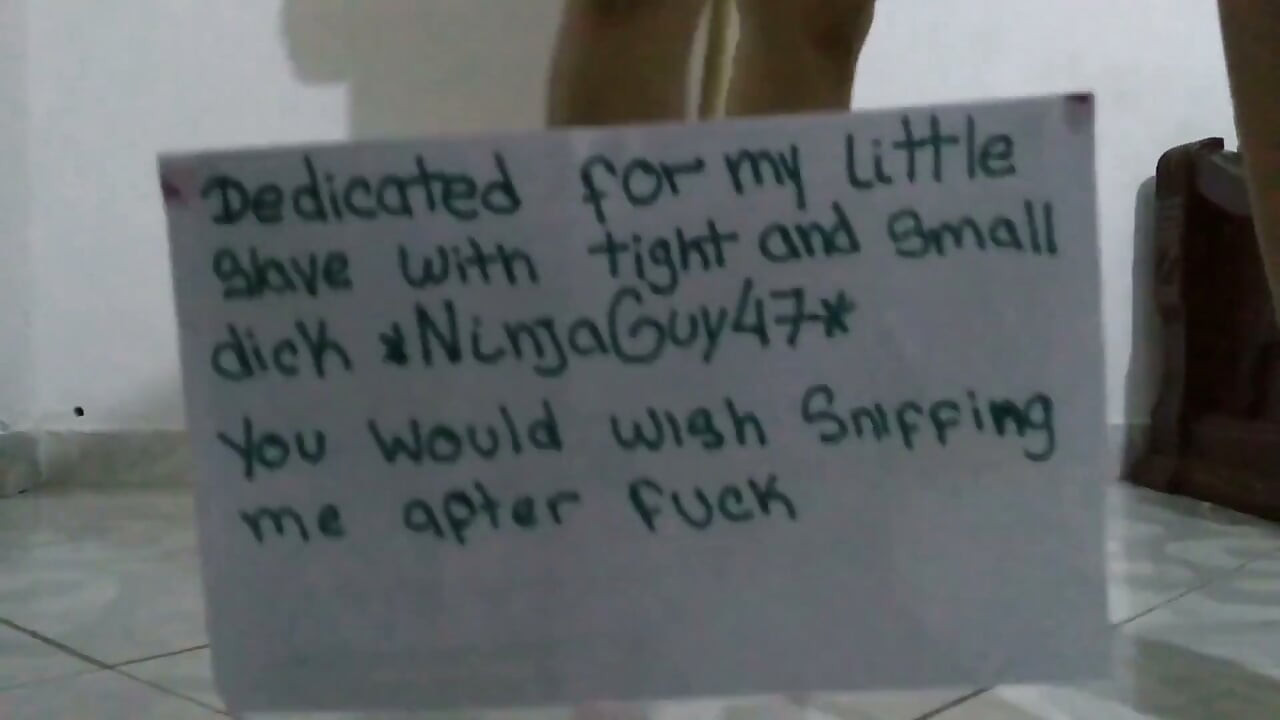 Dedicated for my little
slave with tight and small
dick *NinjaGuy47*
You would wish Sniffing
me after fuck